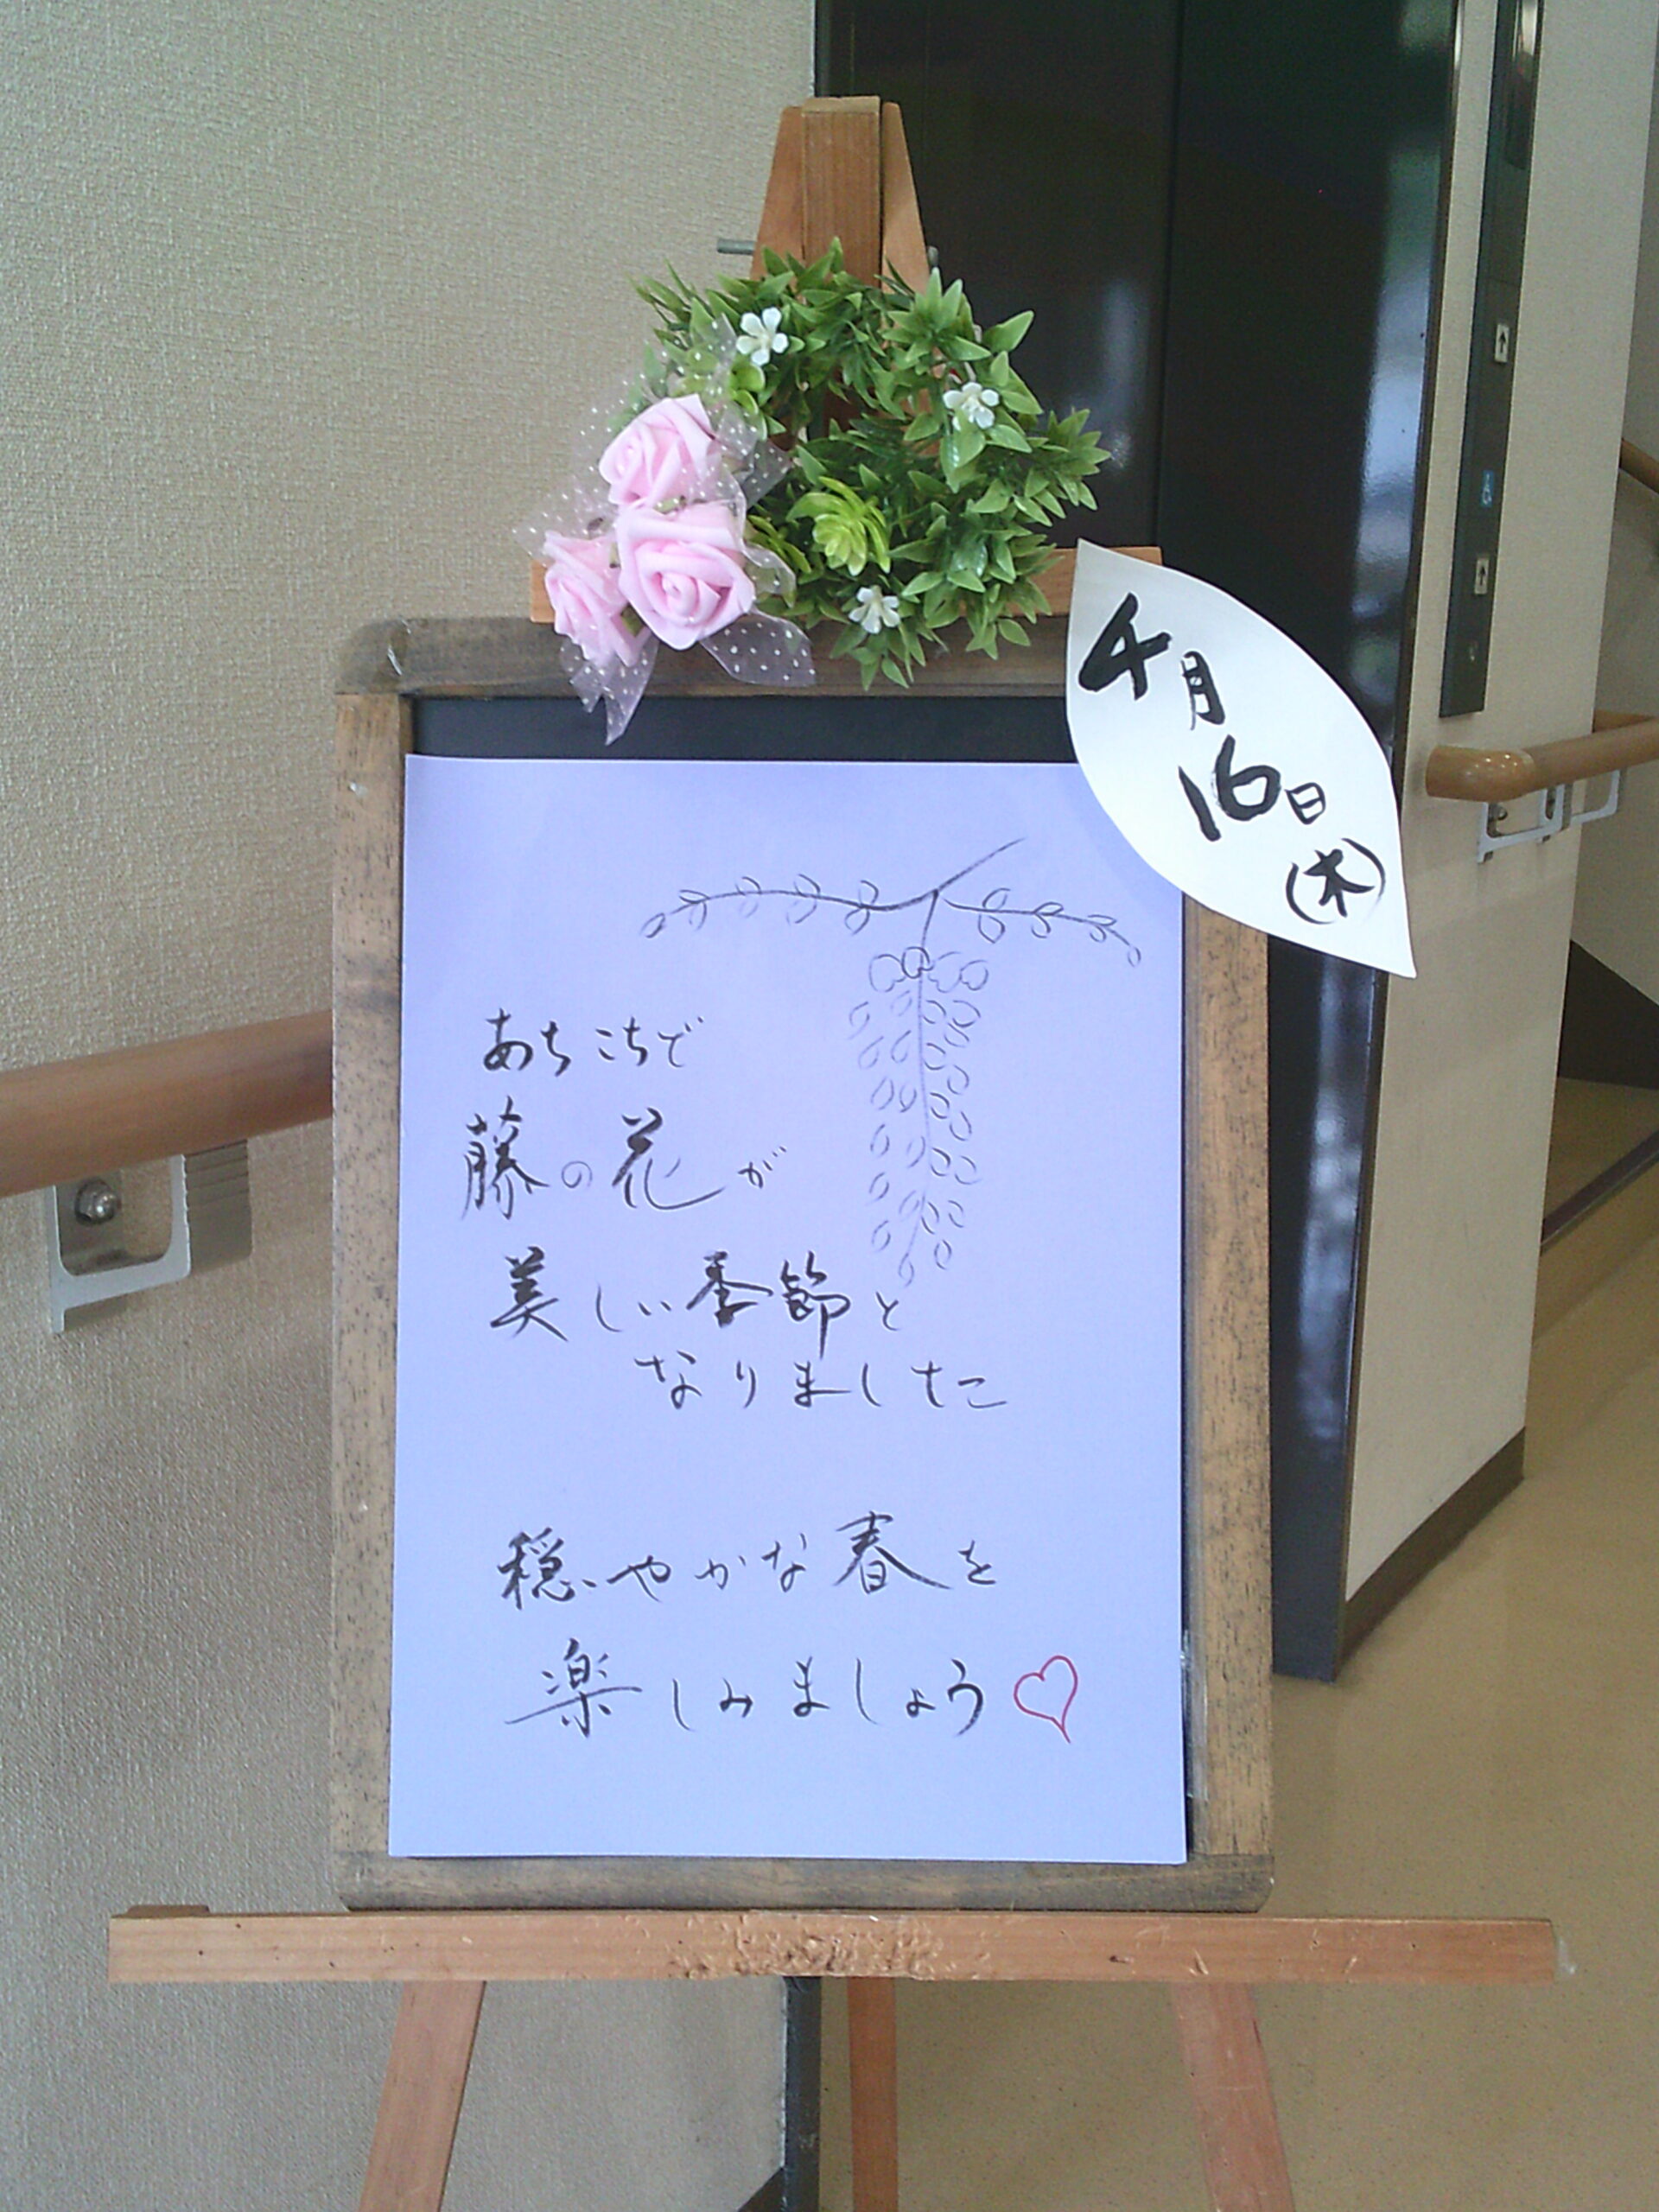 4月
16日
(木)
あちこちで
藤の花が
美しい季節と
なりました
穏やかな春を
楽しみましょう♡